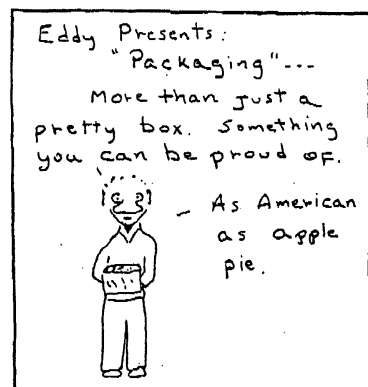 Eddy Presents:
"Packaging"---
More than just a
pretty box. Something
you can be proud of.
As American
as apple
pie.